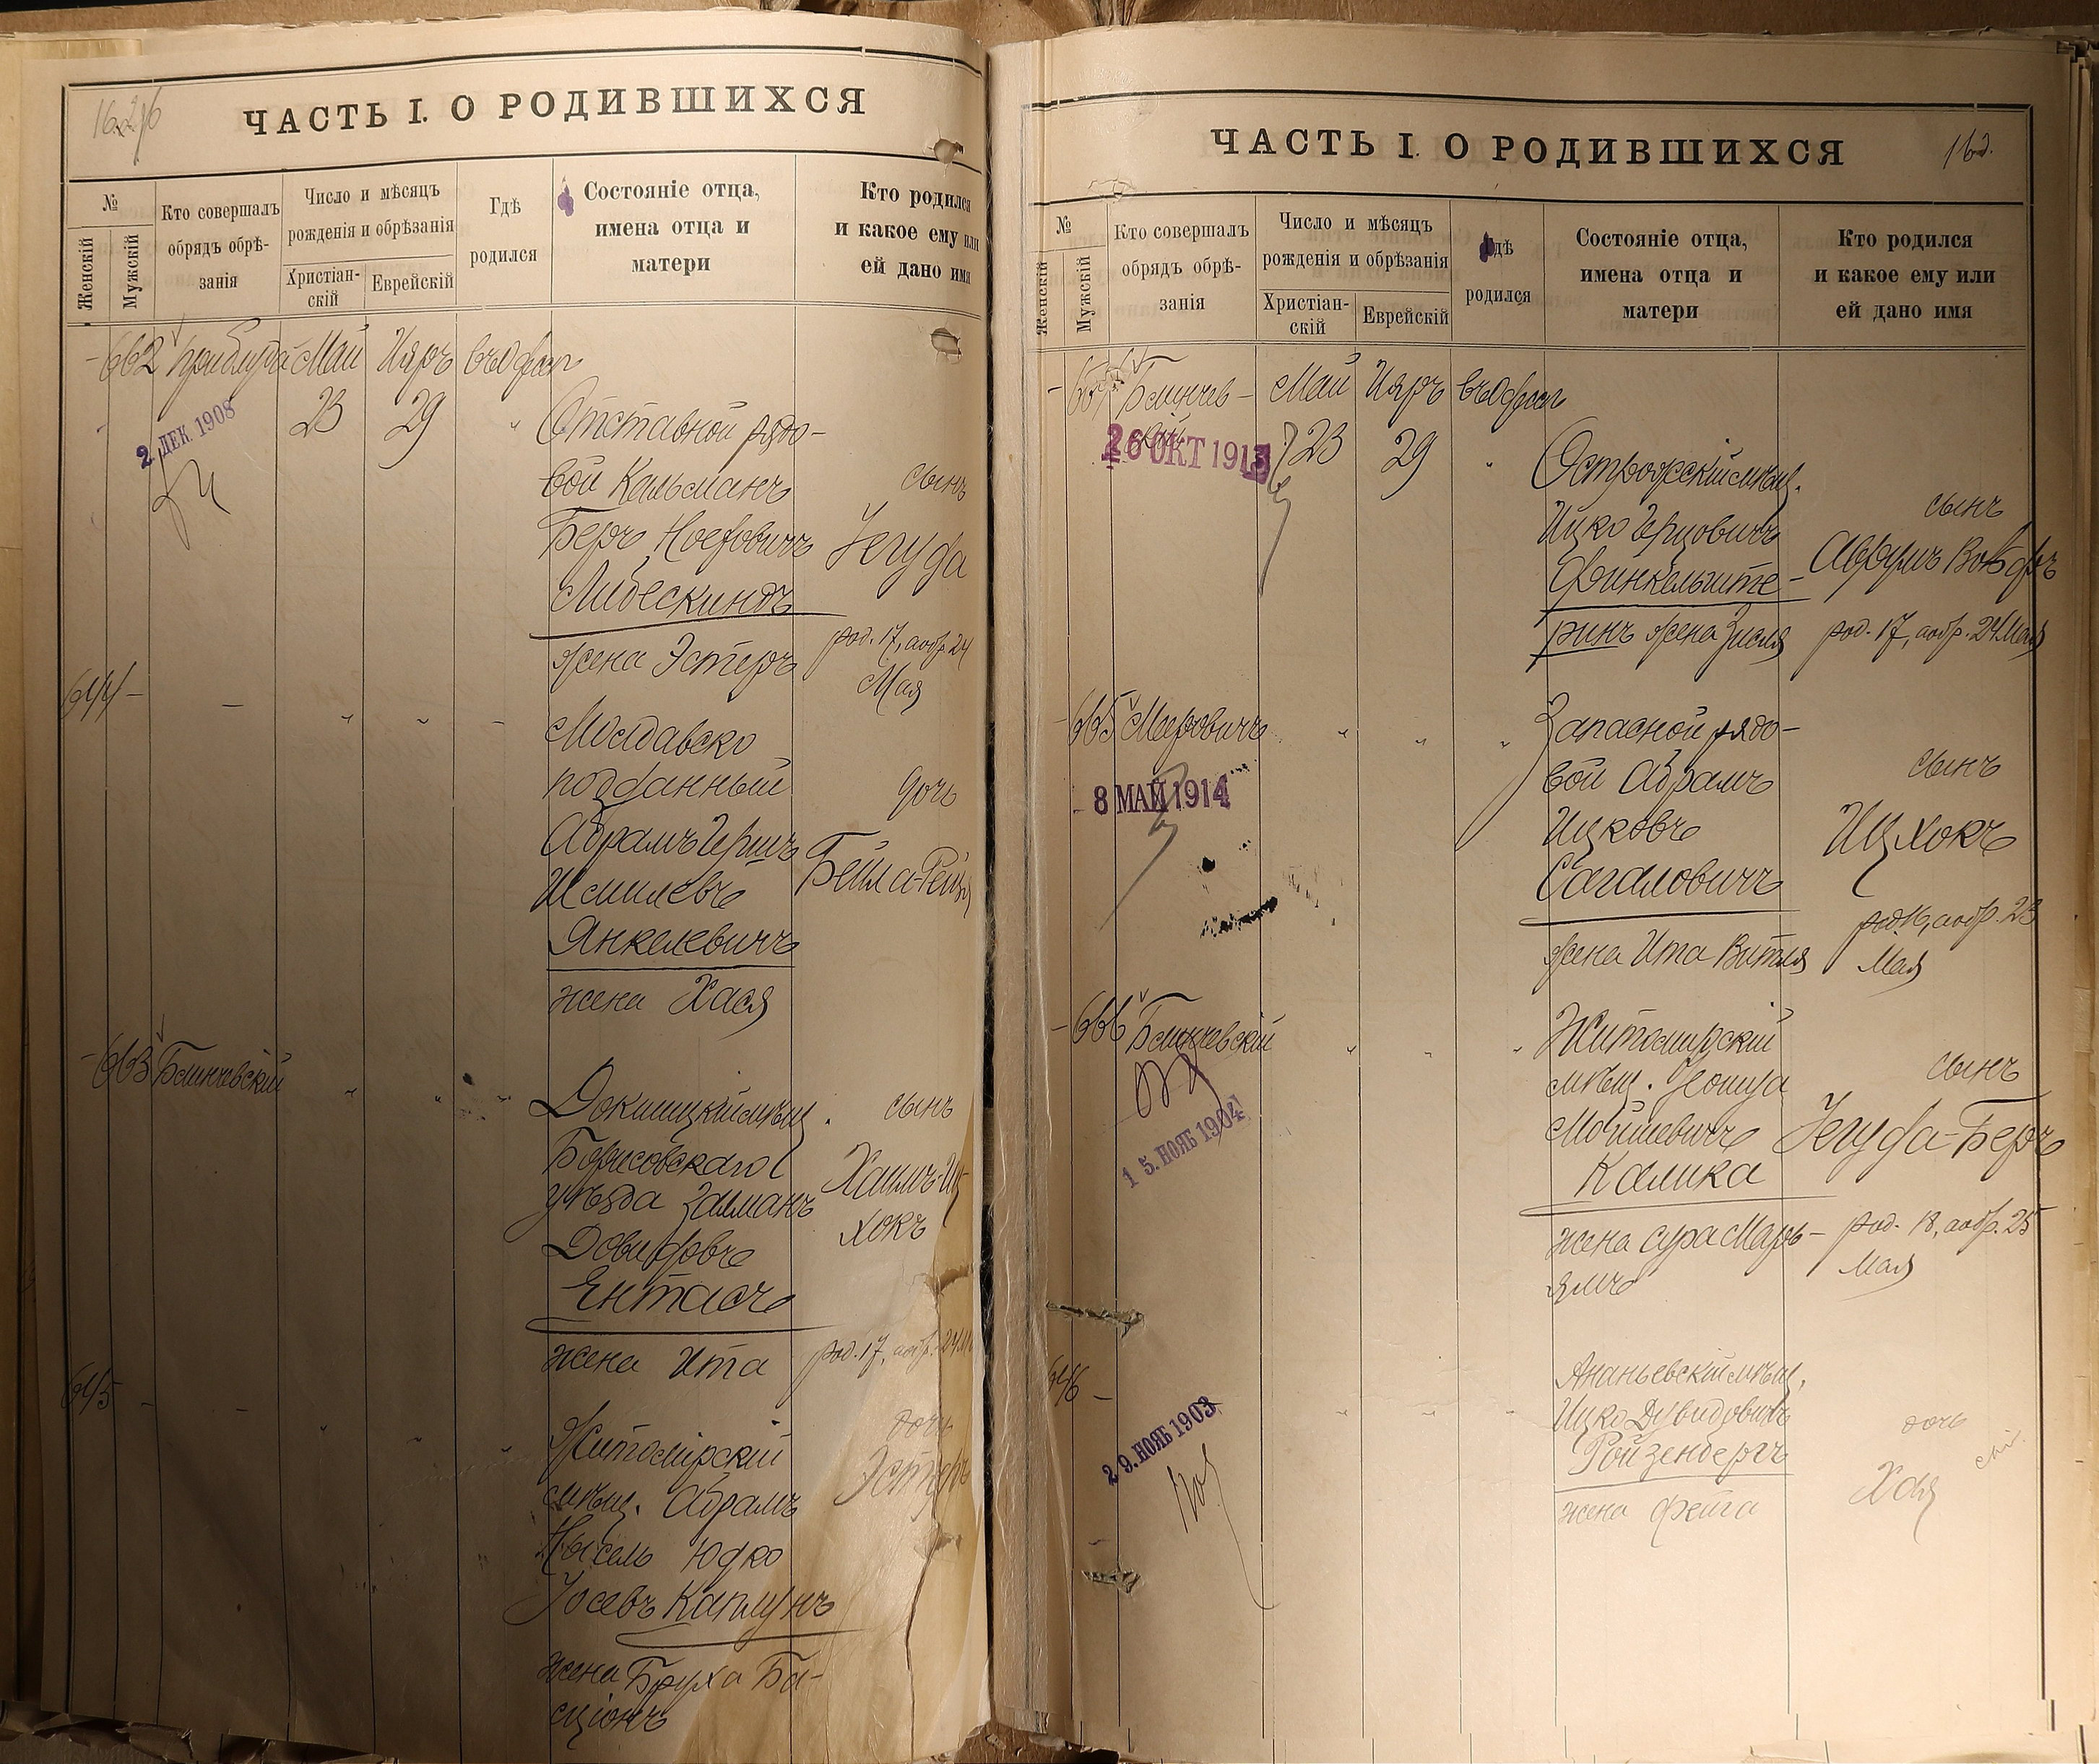 ЧАСТЬ I. О РОДИВШИХСЯ
№
Женскій
Мужскій
Кто совершалъ
обрядъ обрѣ-
занія
Число и мѣсяцъ
рожденія и обрѣзанія
Христіан-
скій
Еврейскій
Гдѣ
родился
Состояніе отца,
имена отца и
матери
Кто родился
и какое ему или
ей дано имя
662 Май Ияръ въ Одессѣ
2 ДЕК. 1908
23 29 "
Отставной рядо-
вой Кальманъ
Беръ Іосефовичъ
Либескиндъ
жена Эстеръ
сынъ
Іегуда
род. 17, а обр. 24
Мая
644 - - " " -
Молдавско
подданный
Абрамъ Гершъ
Шмилевъ
Янкелевичъ
жена Хася
дочь
Бейла-Рейзя
663 Блинчевскій " " "
Докшицкій мѣщ.
Борисовскаго
уѣзда Залманъ
Довидовъ
Ентасъ
жена Ита
сынъ
Хаимъ-Иц
хокъ
род. 17, а обр. 24 М
645 - - " " "
Житомірскій
мѣщ. Абрамъ
Нысель Юдко
Іосевъ Каплунъ
жена Бруха Ба-
сціонъ
дочь
Эстеръ
ЧАСТЬ I. О РОДИВШИХСЯ
№
Женскій
Мужскій
Кто совершалъ
обрядъ обрѣ-
занія
Число и мѣсяцъ
рожденія и обрѣзанія
Христіан-
скій
Еврейскій
Гдѣ
родился
Состояніе отца,
имена отца и
матери
Кто родился
и какое ему или
ей дано имя
664 Блинчев- Май Ияръ въ Одессѣ
скій 23 29 "
26 ОКТ 1913
Острогскій мѣщ.
Ицко Герцовичъ
Финкельште-
ринъ жена Зисля
сынъ
Аврумъ Вольфъ
род. 17, а обр. 24 Мая
665 Меровичъ " " "
8 МАЙ 1914
Запасной рядо-
вой Абрамъ
Ицковъ
Сагаловичъ
жена Ита Витля
сынъ
Ицхокъ
род. 16, а обр. 23
Мая
666 Блинчевскій " " "
15. НОЯБ 1904
Житомирскій
мѣщ. Геошуа
Мойшевичъ
Калика
жена Сура Марь-
ямъ
сынъ
Іегуда-Беръ
род. 18, а обр. 25
Мая
646 - " " "
29. НОЯБ 1903
Ананьевскій мѣщ.
Ицко Дувидовичъ
Ройзенбергъ
жена Фейга
дочь
Хая